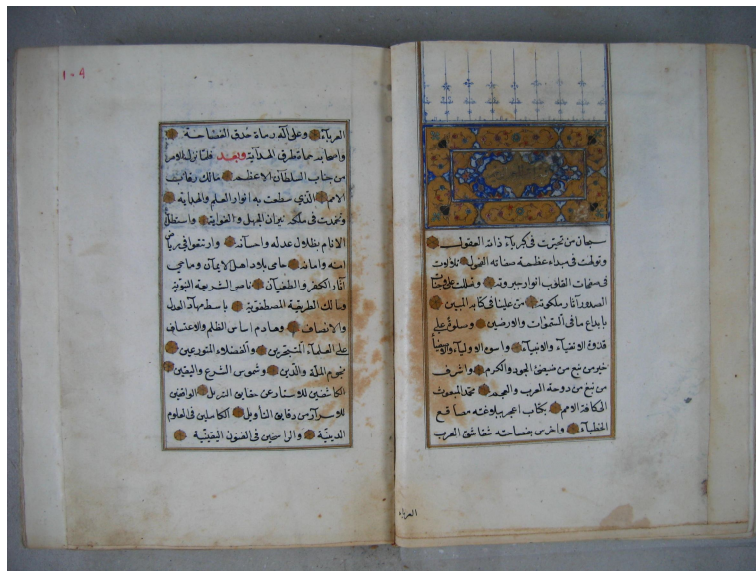 سبحان من تحيرت في كبرياء ذاته العقول
وتولهت في بيداء عظمة صفاته الفحول تلالات
في صفحات القلوب انوار جبروته وتملكت
الصدور آثار ملكوته من علينا في كتابه المبين
بابداع ما في السموات والارضين وسلوة على
قدوة الاتقياء والانبياء واسوة الاولياء والاصفياء
خير من نبع من ضئضئ الجود والكرم واشرف
من نبغ من دوحة العرب والعجم محمد المبعوث
الى كافة الامم بكتاب اعجز ببلاغته مصاقع
الخطباء واخرس شقاشق العرب
العرباء
العرباء وعلى آله رماة حدق الفصاحة
واصحابه حماة طرق الهداية وبعد فلما نزل الامر
من جناب السلطان الاعظم مالك رقاب
الامم الذي سطعت به انوار العلم والهداية
وخمدت في ملكه نيران الجهل والغواية واستظل
الانام بظلال عدله واحسانه وارتقوا في رياض
امنه وامانه حامي بلاد اهل الايمان وماحي
آثار الكفر والطغيان ناصر الشريعة النبوية
وسالك الطريقة المصطفوية باسط مهاد العدل
والانصاف وهادم اساس الظلم والاعتساف
على العلماء المتبحرين والفضلاء المتورعين
نجوم الملة والدين وشموس الشرع واليقين
الكاشفين للاستار عن حقايق التنزيل الواقفين
للاسرار من دقايق التأويل الكاملين في العلوم
الدينية والراسخين في الفنون اليقينية